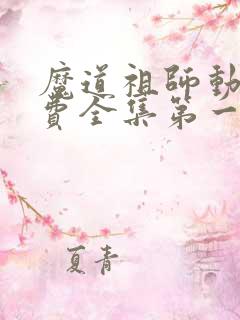 魔道祖師動
費全集第一
夏青